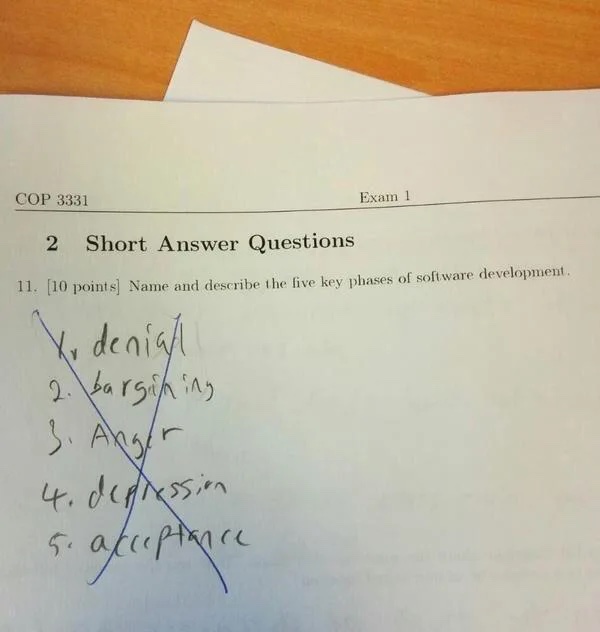 COP 3331 Exam 1
2 Short Answer Questions
11. [10 points] Name and describe the five key phases of software development.
1. denial
2. bargining
3. Anger
4. depression
5. acceptance